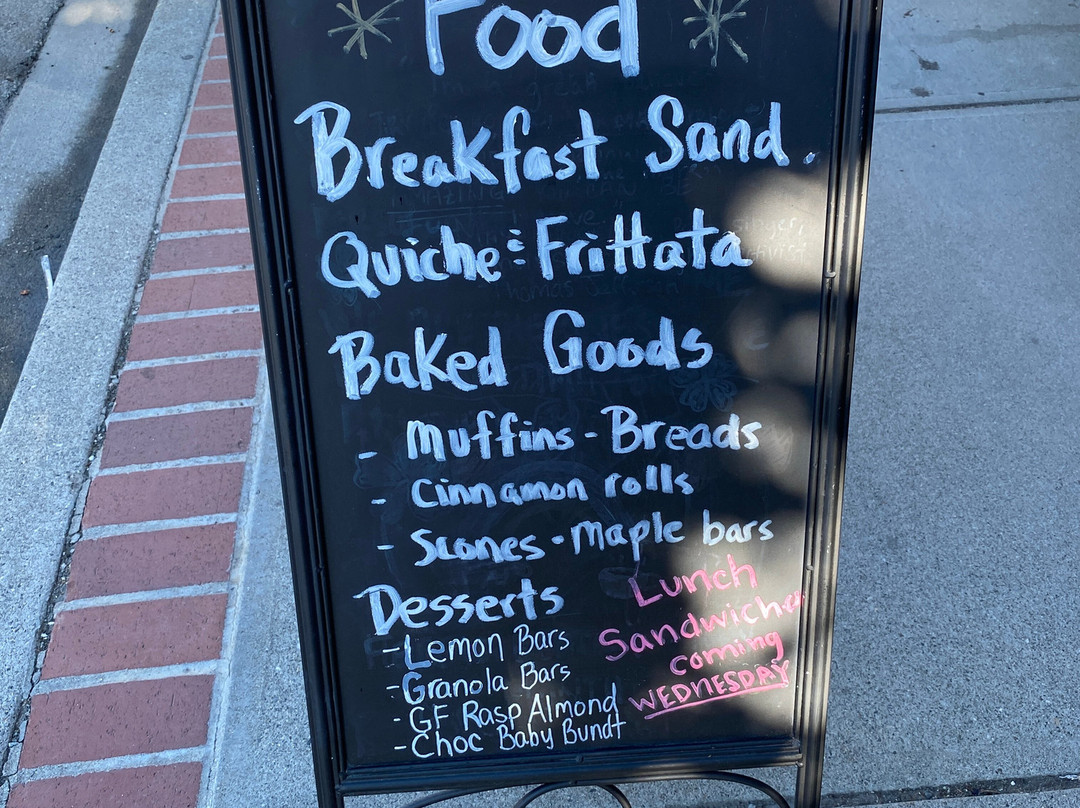 Food
Breakfast Sand.
Quiche & Frittata
Baked Goods
- Muffins - Breads
- Cinnamon rolls
- Scones - Maple bars
Desserts
- Lemon Bars
- Granola Bars
- GF Rasp Almond
- Choc Baby Bundt
Lunch
Sandwiches
coming
WEDNESDAY